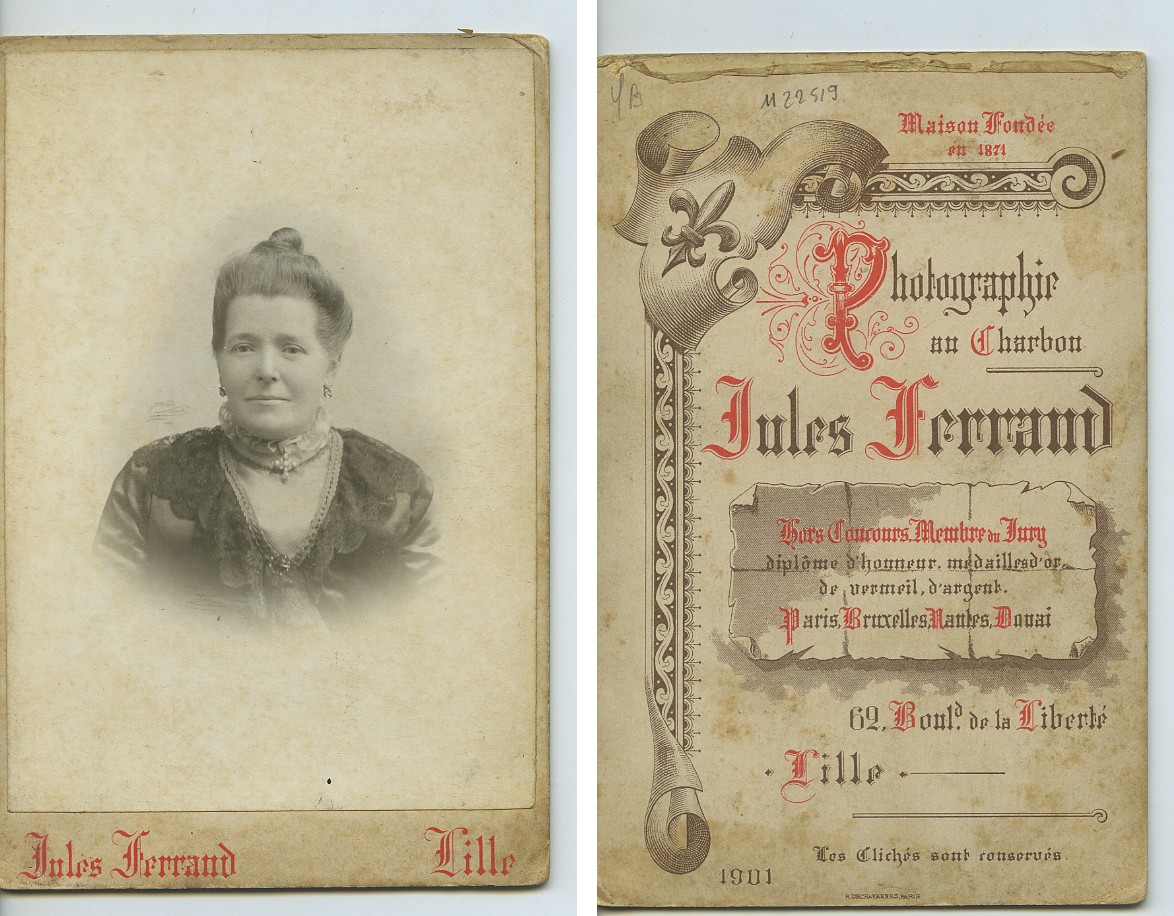 Jules Ferrand Lille
YB 1122519
Maison Fondée
en 1871
Photographie
au Charbon
Jules Ferrand
Hors Concours, Membre du Jury
diplôme d'honneur, médailles d'or,
de vermeil, d'argent.
Paris, Bruxelles, Nantes, Douai
62, Boul.d de la Liberté
Lille
Les Clichés sont conservés.
1901